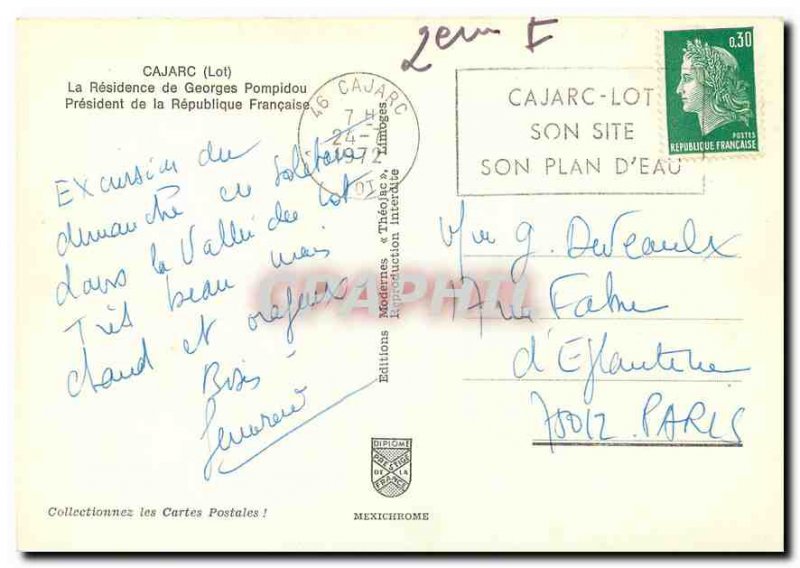 2em F
CAJARC (Lot)
La Résidence de Georges Pompidou
Président de la République Française
46 CAJARC
7 H
24 -
1972
LOT
CAJARC-LOT
SON SITE
SON PLAN D'EAU
0,30
POSTES
REPUBLIQUE FRANÇAISE
Excursion du
dimanche en solitaire
dans la Vallée du Lot
Très beau mais
chaud et orageux
Bises
Editions Modernes « Théojac », Limoges
Reproduction Interdite
CPAPHIL
Mme G. Deveaulx
7 rue Fabre
d'Eglantine
75012 PARIS
DIPLOME
PRESTIGE
DE LA
FRANCE
Collectionnez les Cartes Postales !
MEXICHROME